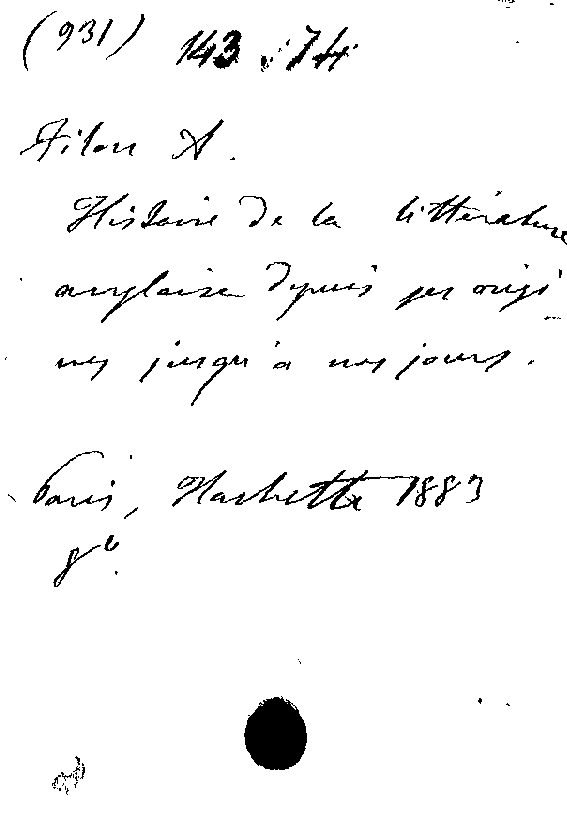 (931) 143 : 74
Filon A.
Histoire de la littérature
anglaise depuis ses origi-
nes jusqu'à nos jours.
Paris, Hachette 1883
8º.